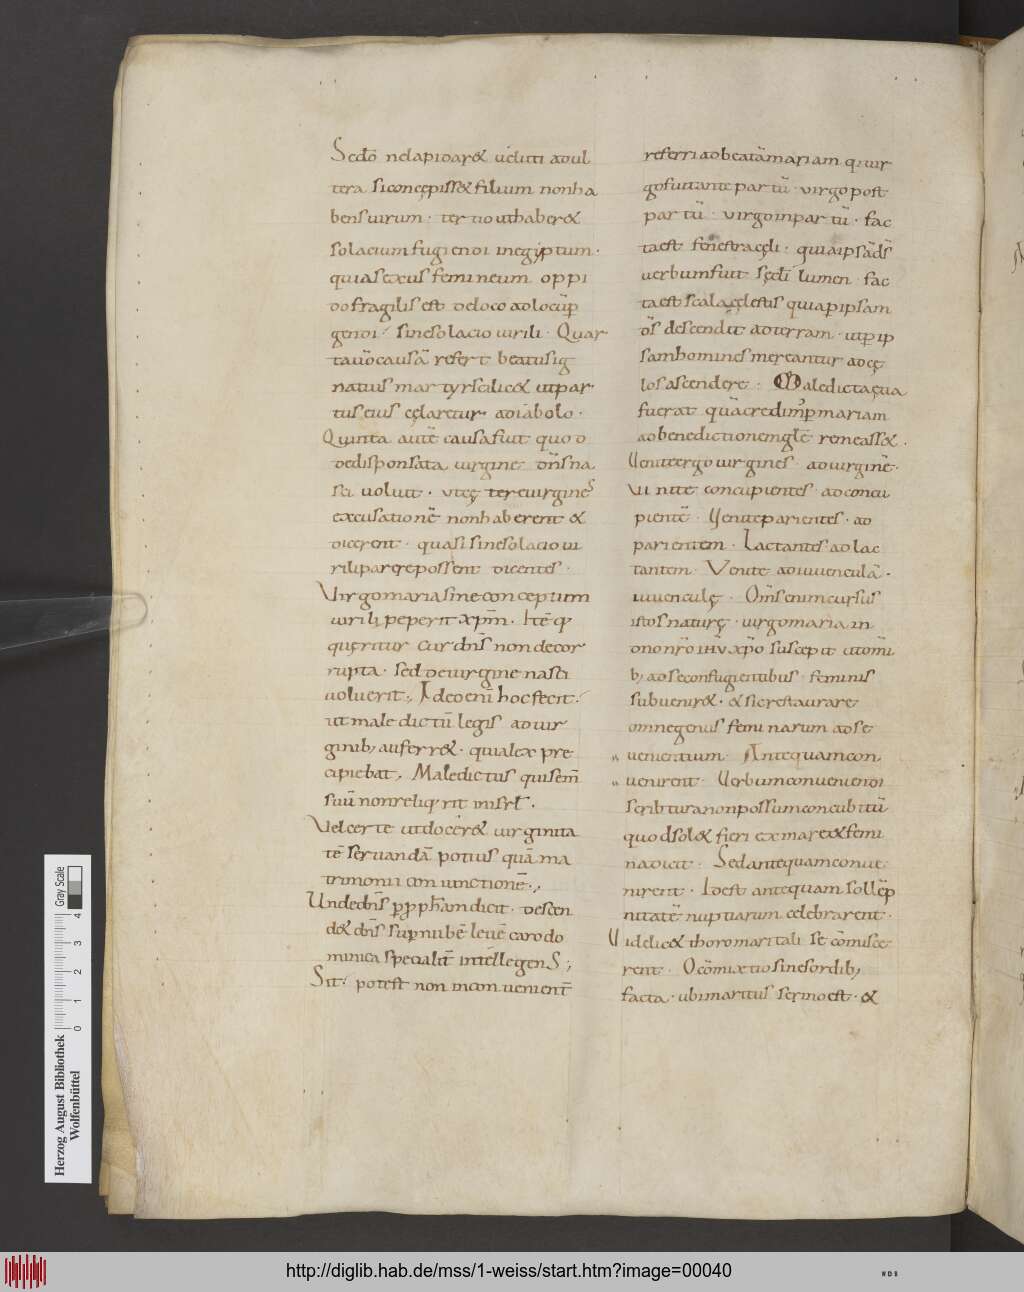 Secdō nelapidar& uéluti adul
tera siconcępiss&filium nonha
bensuirum · tertio uthaber&
solacium fugiendi inegyptum ·
quiasexus femineum oppi
dofragilis est deloco adlocūp
gendi sinesolacio uirili · Quar
tauōcausā refert beatusig
natius martyrscilic& utpar
tus eius cęlaretur · adiabolo ·
Quinta autē causafuit quod
dedisponsata uirgine dn̄s na
sci uoluit · utcę tere uirgines
excusationē nonhaberent &
dicerent · quasi sinesolacio ui
riliparęrepossent dicentes ·
Virgo maria sineconceptum
uirili peperit xp̄m · Itē q
quęritur cur dn̄s non decor
rupta · sed deuirgine nasci
uoluerit · Ideo enī hoc fecit ·
ut male dictū legis aduir
ginib; auferr& · qualex pre
cipiebat · Maledictus quisem̄
suū nonreliq̇rit insrl̄ ·
Velcerte utdocer& uirginita
tē seruandā potius quā ma
trimonii coniunctionē ·
Undedn̄s pp pham dicit · descen
d& dn̄s supnubē leuē carodo
minica specialit̄ intellegens ;
Sit potest non inconuenient̄
referri adbeatāmariam q;uir
gofuitante partū · virgo post
partū · virgo inpartū · fac
taest fenestracęli · quiaipsāds̄
uerbumfuit sęcl̄i lumen fac
taest scala cęlestis quiapipsam
ds̄ descendit adterram · utpip
sam homines mereantur adcę
los ascendere · Maledicta eua
fuerat quācredim̄ pmariam
adbenedictionemglę remeass& ·
Uenite ergo uirgines aduirginē ·
Uenite concipientes · adconci
pientē · Uenite parientes · ad
parientem · Lactantes ad lac
tantem · Venite ad iuuenculā ·
iuuenculę · Om̄s enim cursus
istos naturę · uirgomaria in
dno nr̄o ihu xp̄o suscepit utom̄i
b; adseconfugientibus · feminis
subuenir& · & sic restaurare
omnegenus feminarum adse
uenientium · Antequamcon
uenirent · Uerbumconueniendi
scribturanonpossumconcubitū
quodsol& fieri ex mare&femi
nadicit · Sedantequamconue
nirent · Idest antequam sollēp
nitatē nuptiarum celebrarent ·
Uidelic& thoro maritali se cōmisce
rent · O cōmixtio sinesordib;
facta · ubi maritus sermo est · &
Herzog August Bibliothek
Wolfenbüttel
0 1 2 3 4
Gray Scale
http://diglib.hab.de/mss/1-weiss/start.htm?image=00040